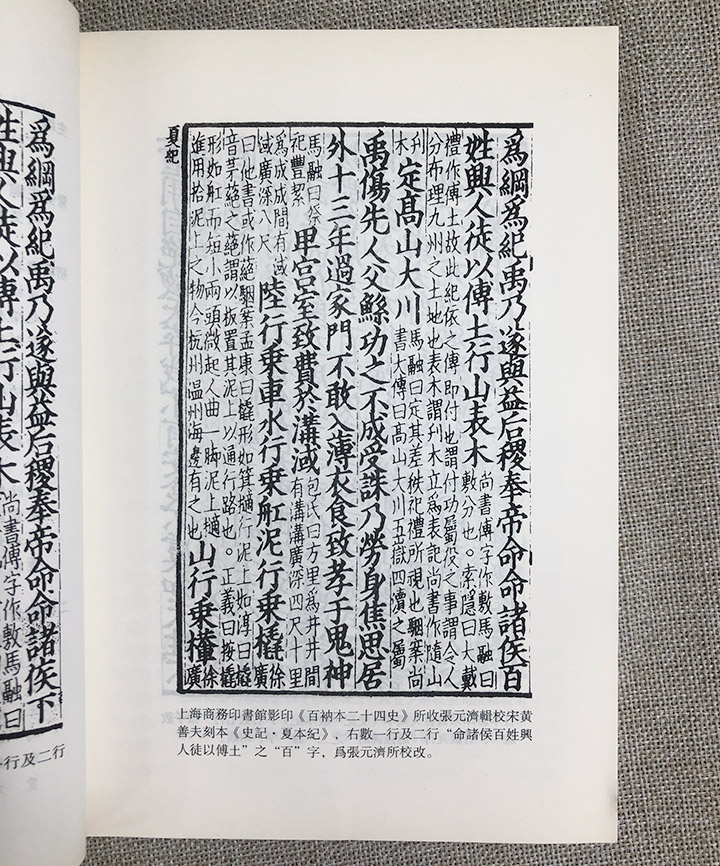 爲綱爲紀禹乃遂與益后稷奉帝命命諸侯百
姓興人徒以傅土行山表木尚書傅字作敷馬融曰
敷分也。索隱曰大戴
禮作傅土故此紀依之傅即付也謂付功屬役之事謂令人
分布理九州之土地也表木謂刋木立爲表記尚書作隨山
刋
木定高山大川馬融曰定其差秩祀禮所視也駰案尚
書大傳曰高山大川五嶽四瀆之屬
禹傷先人父鯀功之不成受誅乃勞身焦思居
外十三年過家門不敢入薄衣食致孝于鬼神
馬融曰祭
祀豐絜卑宮室致費於溝淢包氏曰方里爲井井間
有溝溝廣深四尺十里
爲成成間有淢
淢廣深八尺陸行乘車水行乘舡泥行乘橇徐
廣
曰他書或作蕝駰案孟康曰橇形如箕擿行泥上如淳曰橇
音茅蕝之蕝謂以板置其泥上以通行路也。正義曰按橇
形如舡而短小兩頭微起人曲一脚泥上擿
進用拾泥上之物今杭州温州海邊有之也山行乘檋徐
廣
夏紀
上海商務印書館影印《百衲本二十四史》所收張元濟輯校宋黃
善夫刻本《史記·夏本紀》、右數一行及二行“命諸侯百姓興
人徒以傅土”之“百”字，爲張元濟所校改。
爲綱爲紀禹乃遂與益后稷奉帝命命諸侯下
姓興人徒以傅土行山表木尚書傅字作敷馬融曰
行及二行